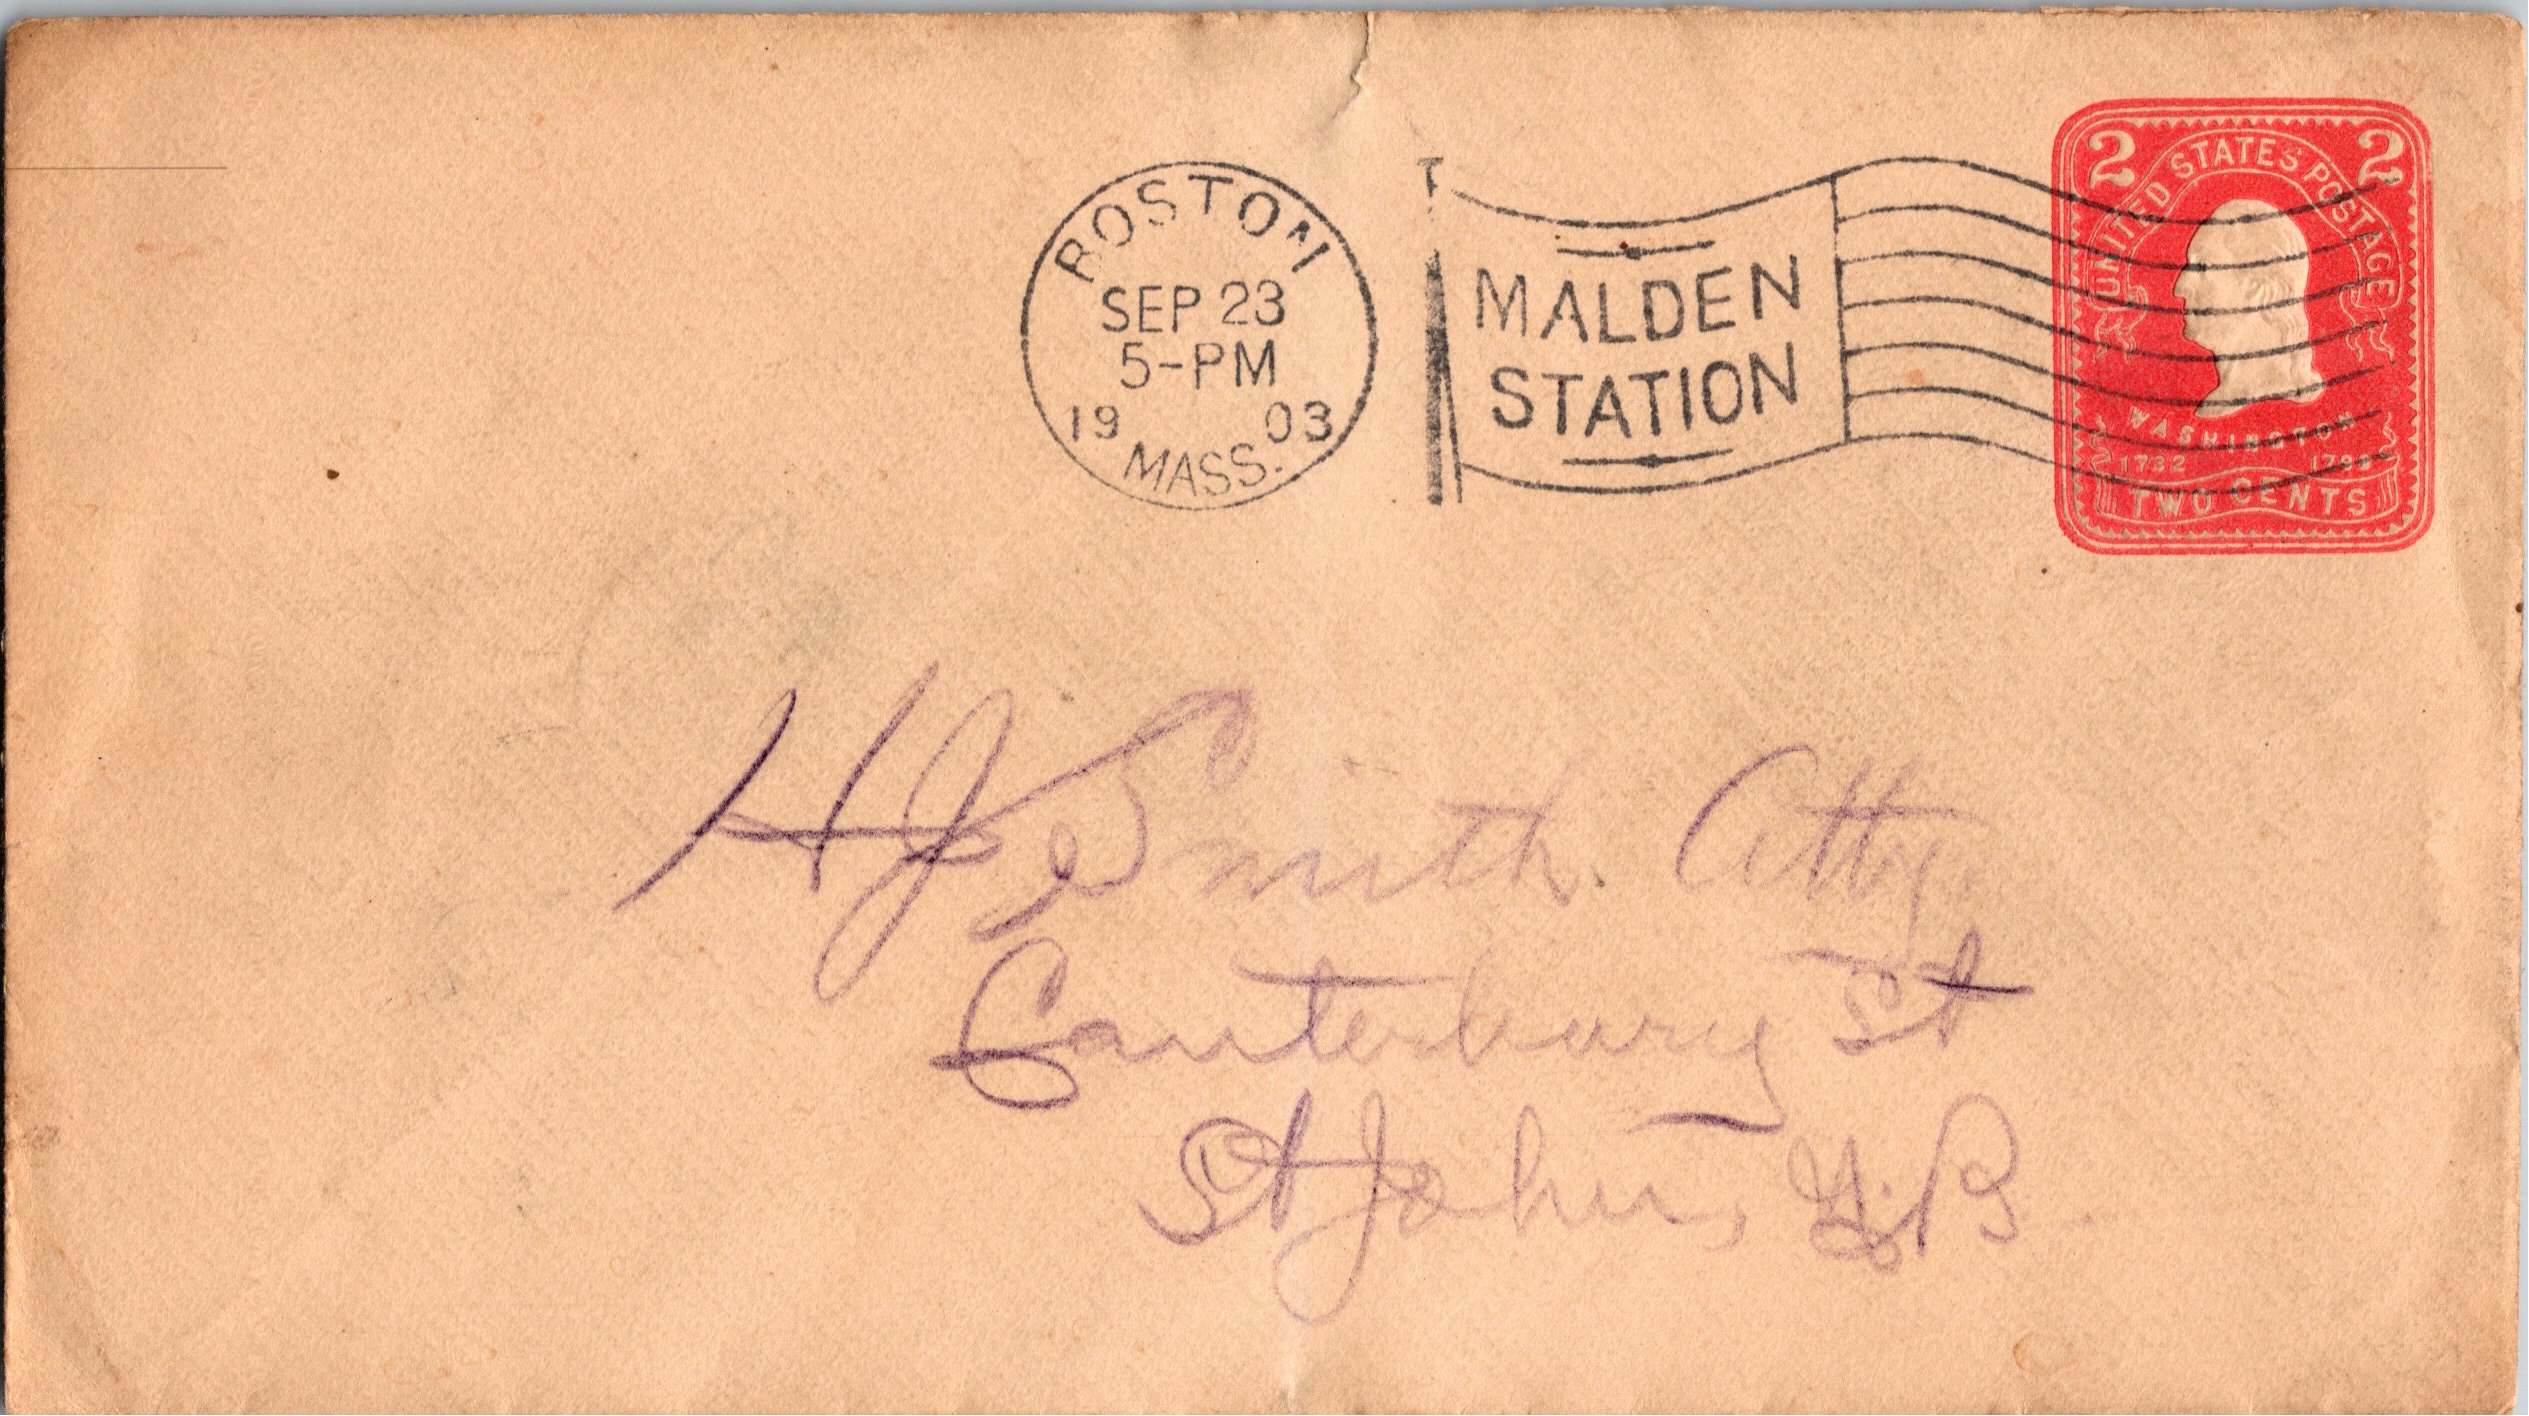 BOSTON
SEP 23
5-PM
19 03
MASS.
MALDEN
STATION
2 2
UNITED STATES POSTAGE
WASHINGTON
1732 1799
TWO CENTS
H J Smith. Atty.
Canterbury St
St John, N.B.